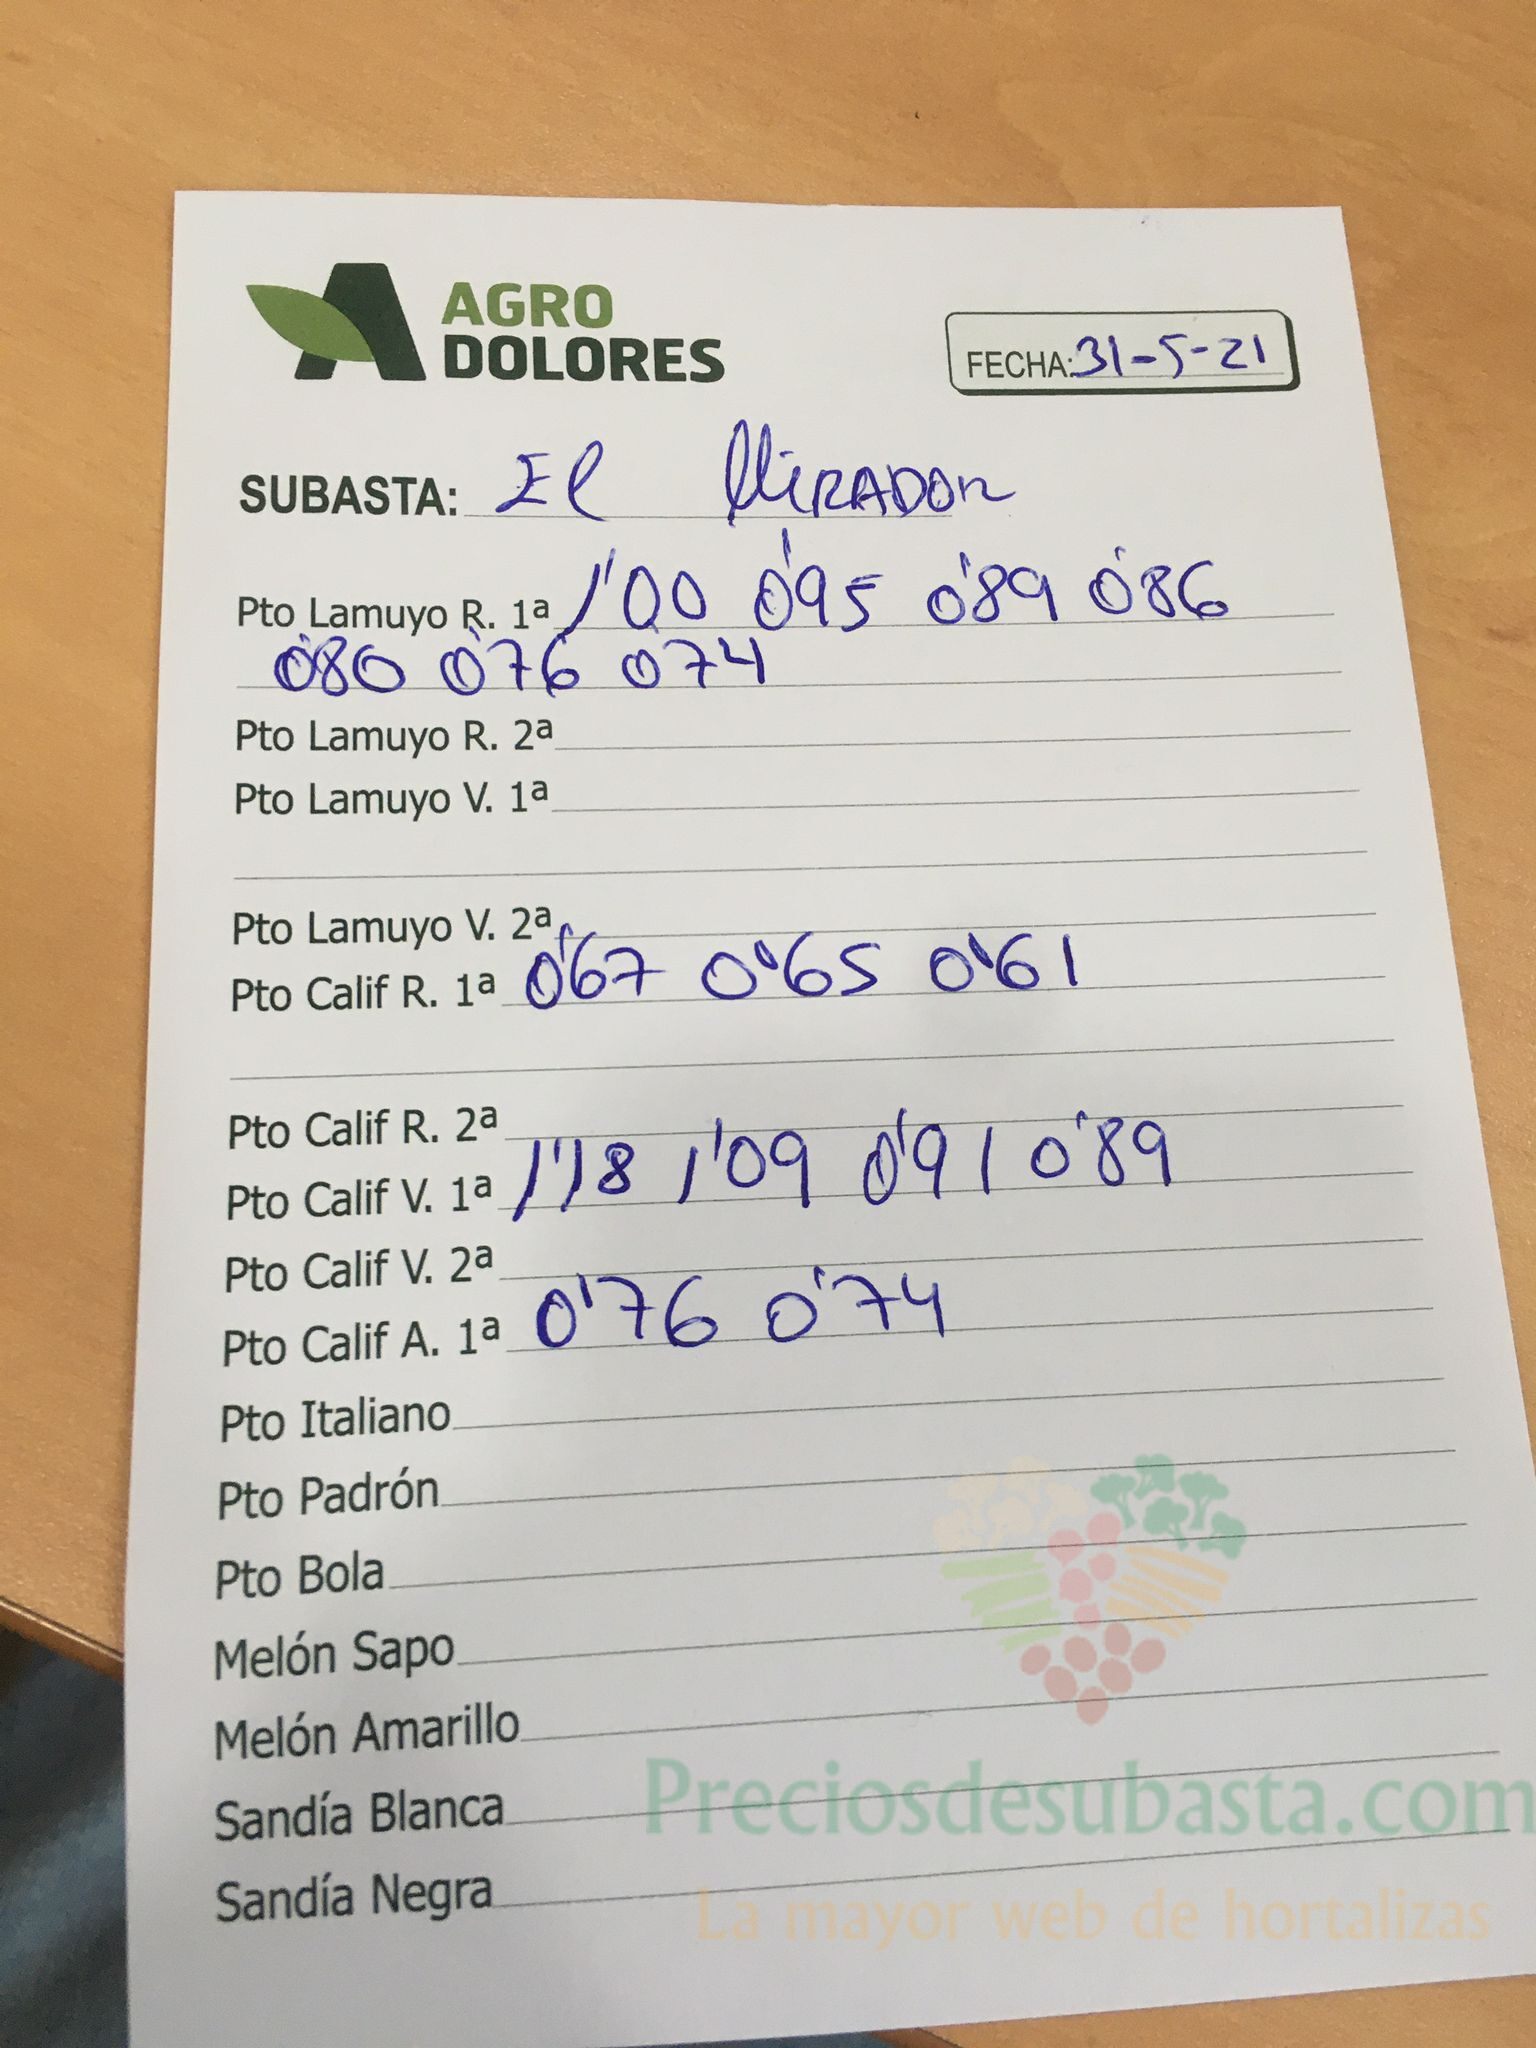 AGRO
DOLORES
FECHA: 31-5-21
SUBASTA: El MiRADOR
Pto Lamuyo R. 1ª 1'00 0'95 0'89 0'86
0'80 0'76 0'74
Pto Lamuyo R. 2ª
Pto Lamuyo V. 1ª
Pto Lamuyo V. 2ª
Pto Calif R. 1ª 0'67 0'65 0'61
Pto Calif R. 2ª
Pto Calif V. 1ª 1'18 1'09 0'91 0'89
Pto Calif V. 2ª
Pto Calif A. 1ª 0'76 0'74
Pto Italiano
Pto Padrón
Pto Bola
Melón Sapo
Melón Amarillo
Sandía Blanca
Sandía Negra
Preciosdesubasta.com
La mayor web de hortalizas